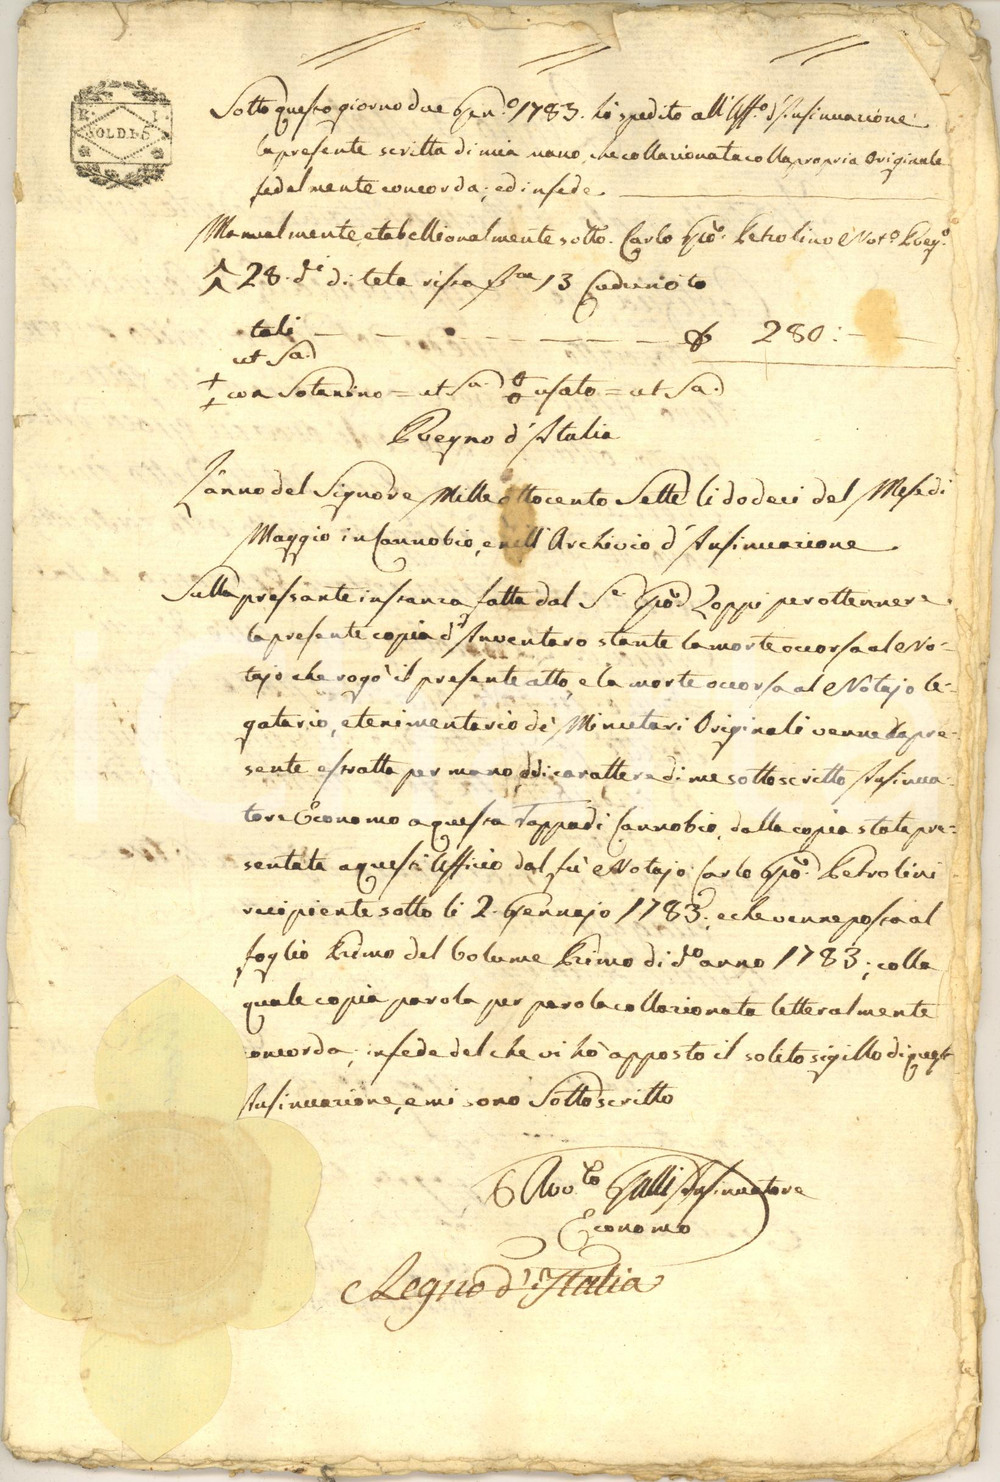 R I
SOLDI 5
Sotto questo giorno due Genº 1783. hò spedito all'Uffº d'Insinuazione
la presente scritta di mia mano, che collazionata colla propria Originale
fedelmente concorda; ed in fede
Manualmente, e tabellionalmente sottº. Carlo Gpõ. Petrolino Notº Regº
28. di tela rissa 13
tali — — — — — — 280:
ut Sa.
con Sotanino = ut Sa. usato = ut Sa.
Regno d'Italia
L'anno del Signore Mille ottocento Sette li dodeci del Mese di
Maggio in Cannobio, e nell'Archivio d'Insinuazione
Sulla pressante instanza fatta dal Sr Gpõ Zoppi per ottennere
la presente copia d'Inventaro stante la morte occorsa al No-
tajo che rogò il presente atto, e la morte occorsa al Notajo le-
gatario, e tenimentario di Minutari Originali venne la pre-
sente estratta per mano, di carattere di me sottoscritto Insinua-
tore Economo a questa Tappa di Cannobio, dalla copia stata pre-
sentata a questi Ufficio dal fù Notajo Carlo Gpõ. Petrolini
recipiente sotto li 2. Gennajo 1783; e che venne posta al
foglio Primo del Volume Primo di dº anno 1783; colla
quale copia parola per parola collazionata letteralmente
concorda; in fede del che vi hò apposto il solito sigillo di quest'
Insinuazione, e mi sono Sottoscritto
Galli Insinuatore
Economo
Regno d'Italia